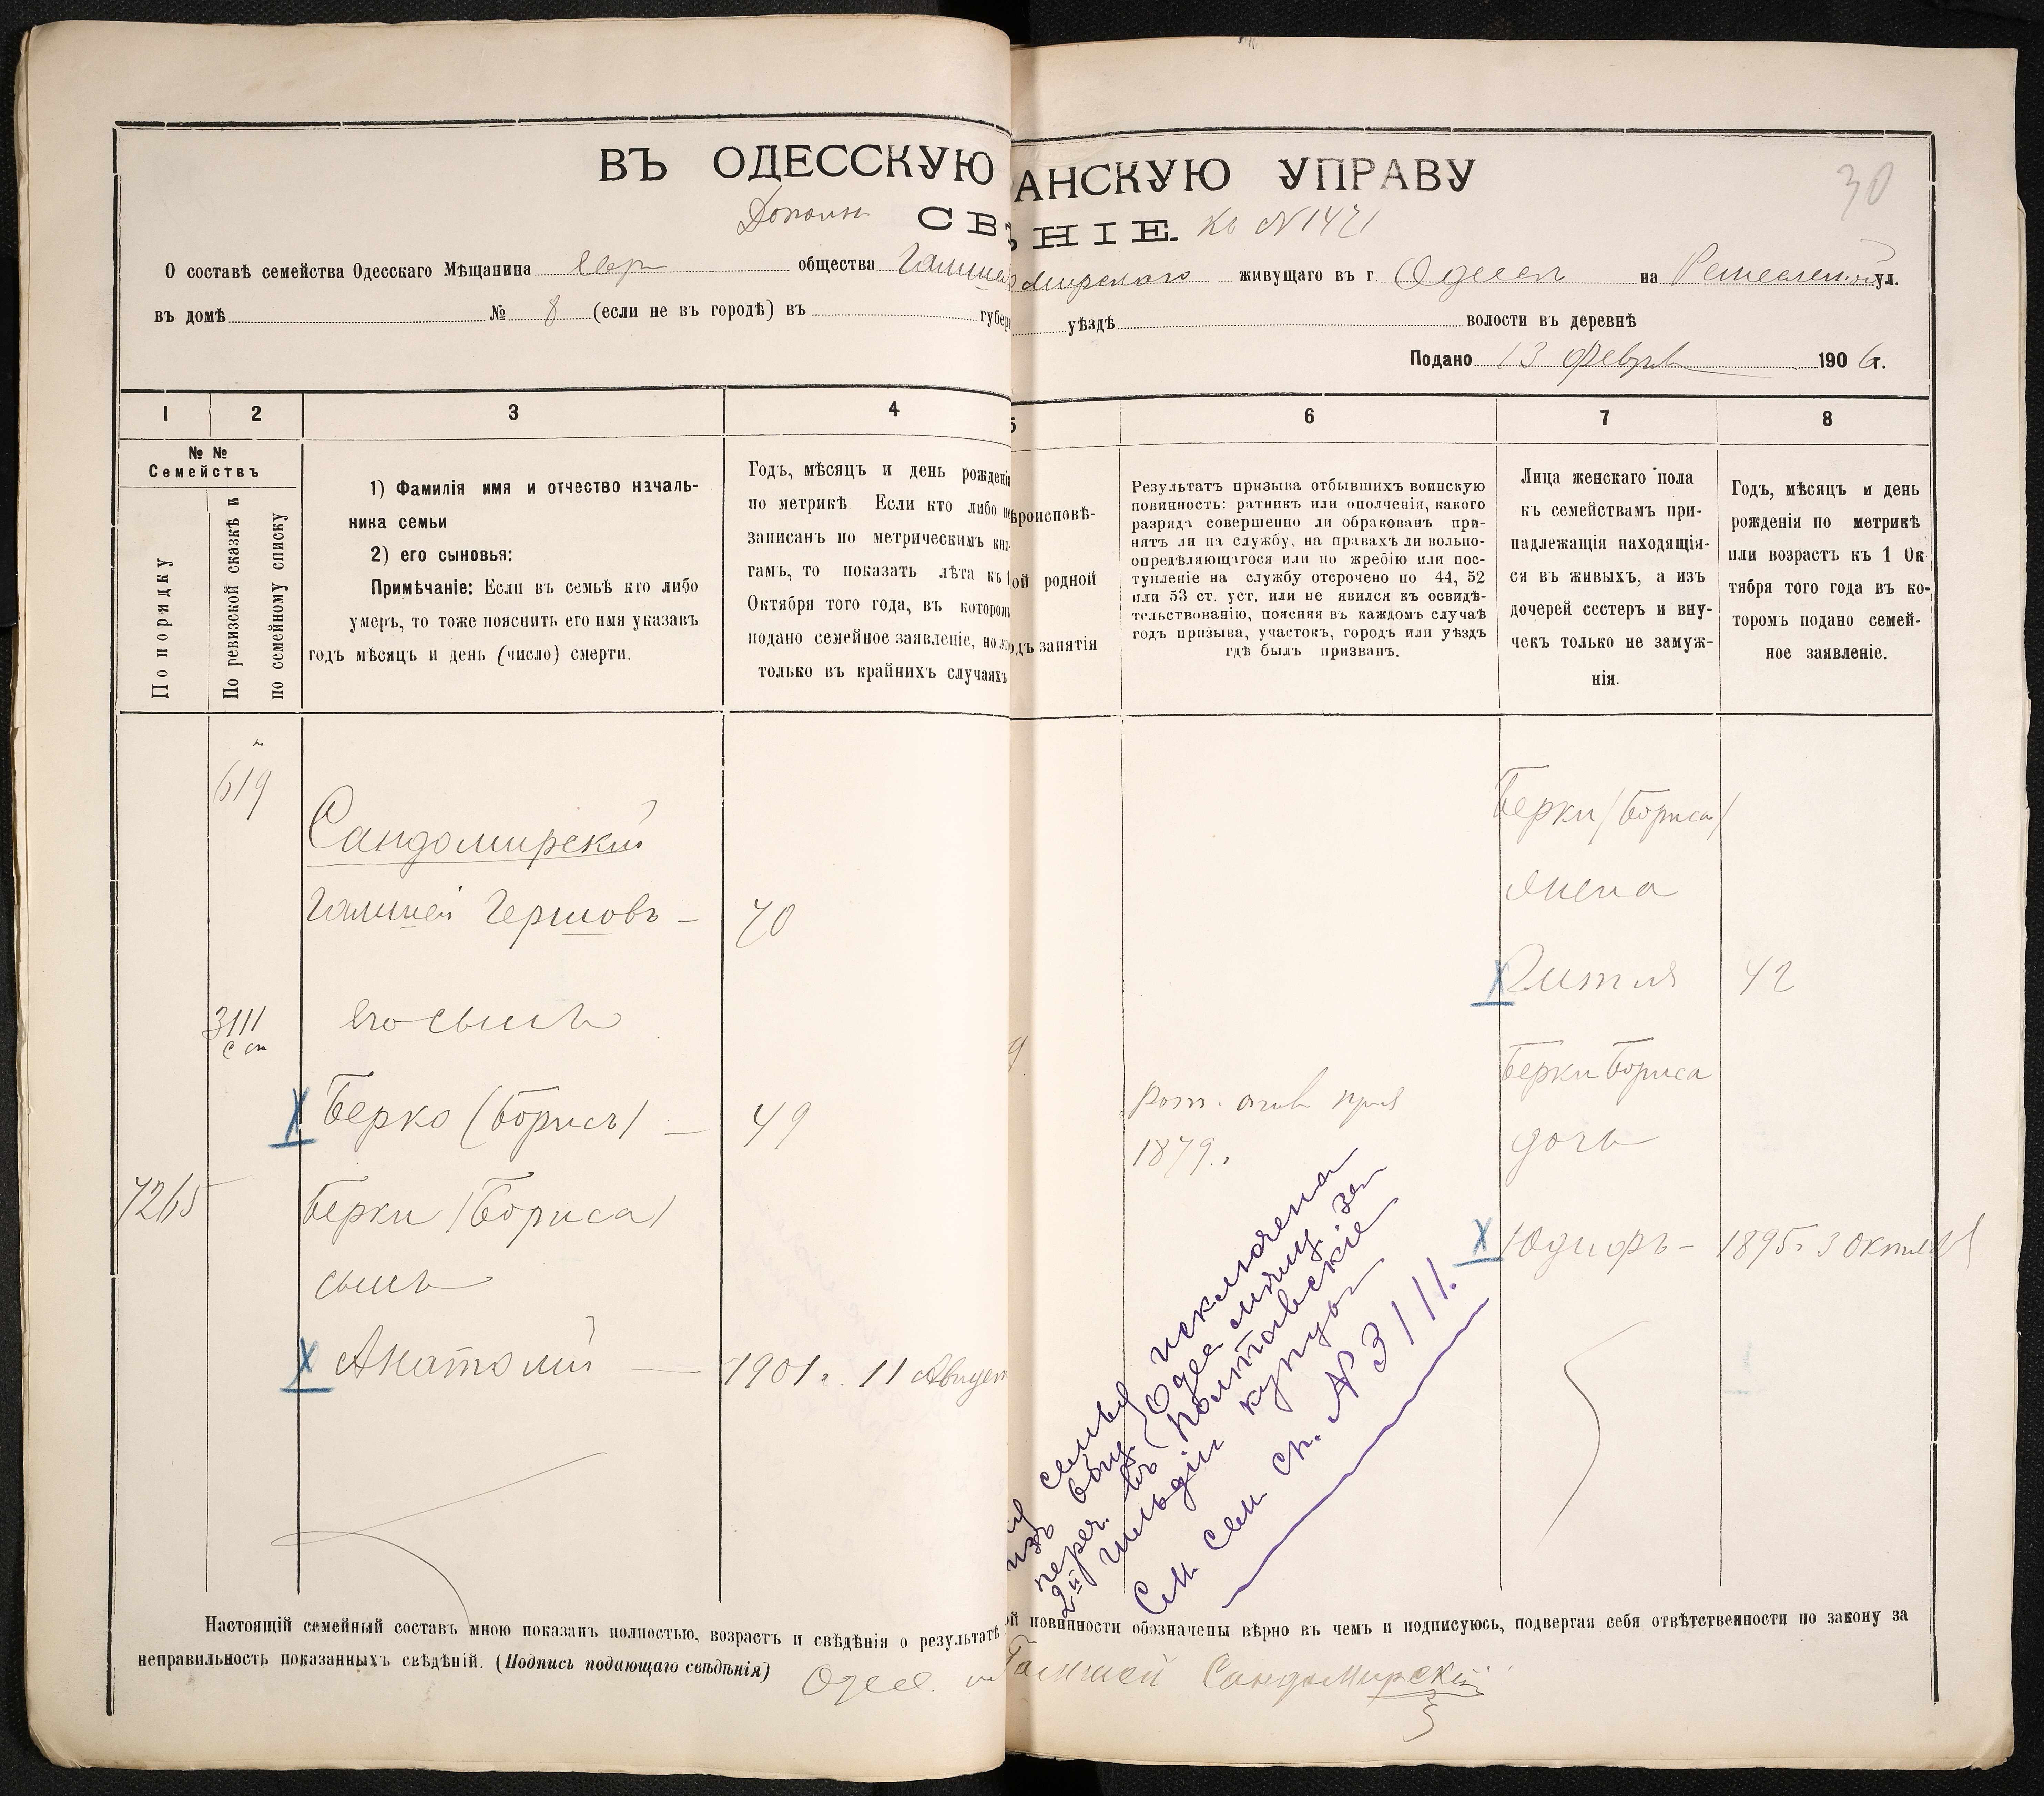 ВЪ ОДЕССКУЮ АНСКУЮ УПРАВУ
30
Дополн СВ НІЕ. Къ № 1471
О составѣ семейства Одесскаго Мѣщанина Евр общества Галшея домирскаго живущаго въ г. Одессѣ на Ремесленной ул.
въ домѣ № 8 (если не въ городѣ) въ губер уѣздѣ волости въ деревнѣ
Подано 13 Февр 1906 г.
1 2 3 4 5 6 7 8
№ №
Семействъ
По порядку
По ревизской сказкѣ и
по семейному списку
1) Фамилія имя и отчество началь-
ника семьи
2) его сыновья:
Примѣчаніе: Если въ семьѣ кто либо
умеръ, то тоже пояснить его имя указавъ
годъ мѣсяцъ и день (число) смерти.
Годъ, мѣсяцъ и день рожденія
по метрикѣ Если кто либо не
записанъ по метрическимъ кни-
гамъ, то показать лѣта къ 1
Октября того года, въ которомъ
подано семейное заявленіе, но это
только въ крайнихъ случаяхъ
ѣроисповѣ-
ой родной
одъ занятія
Результатъ призыва отбывшихъ воинскую
повинность: ратникъ или ополченія, какого
разряда совершенно ли обракованъ при-
нятъ ли на службу, на правахъ ли вольно-
опредѣляющагося или по жребію или пос-
тупленіе на службу отсрочено по 44, 52
или 53 ст. уст. или не явился къ освидѣ-
тельствованію, поясняя въ каждомъ случаѣ
годъ призыва, участокъ, городъ или уѣздъ
гдѣ былъ призванъ.
Лица женскаго пола
къ семействамъ при-
надлежащія находящія-
ся въ живыхъ, а изъ
дочерей сестеръ и вну-
чекъ только не замуж-
нія.
Годъ, мѣсяцъ и день
рожденія по метрикѣ
или возрастъ къ 1 Ок
тября того года въ ко-
торомъ подано семей-
ное заявленіе.
619
Сандомирскій
Галшей Гершовъ — 70
3111
с сп
его сынъ
X Берко (Борисъ) — 49
7265
Берки (Бориса)
сынъ
X Анатолій — 1901 г. 11 Август
рат. опол приз
1879 г.
Берки (Бориса)
жена
X Гитля 42
Берки Бориса
дочь
X Юдифь — 1895 г 3 Октября
семья исключена
изъ общ. Одес мѣщ. за
переч. въ Полтавскіе
2й гильдіи купцы
См. Сем. сп. № 3111.
Настоящій семейный составъ мною показанъ полностью, возрастъ и свѣдѣнія о результатѣ ой повинности обозначены вѣрно въ чемъ и подписуюсь, подвергая себя отвѣтственности по закону за
неправильность показанныхъ свѣдѣній. (Подпись подающаго свѣдѣнія) Одес. м Галшей Сандомирскій